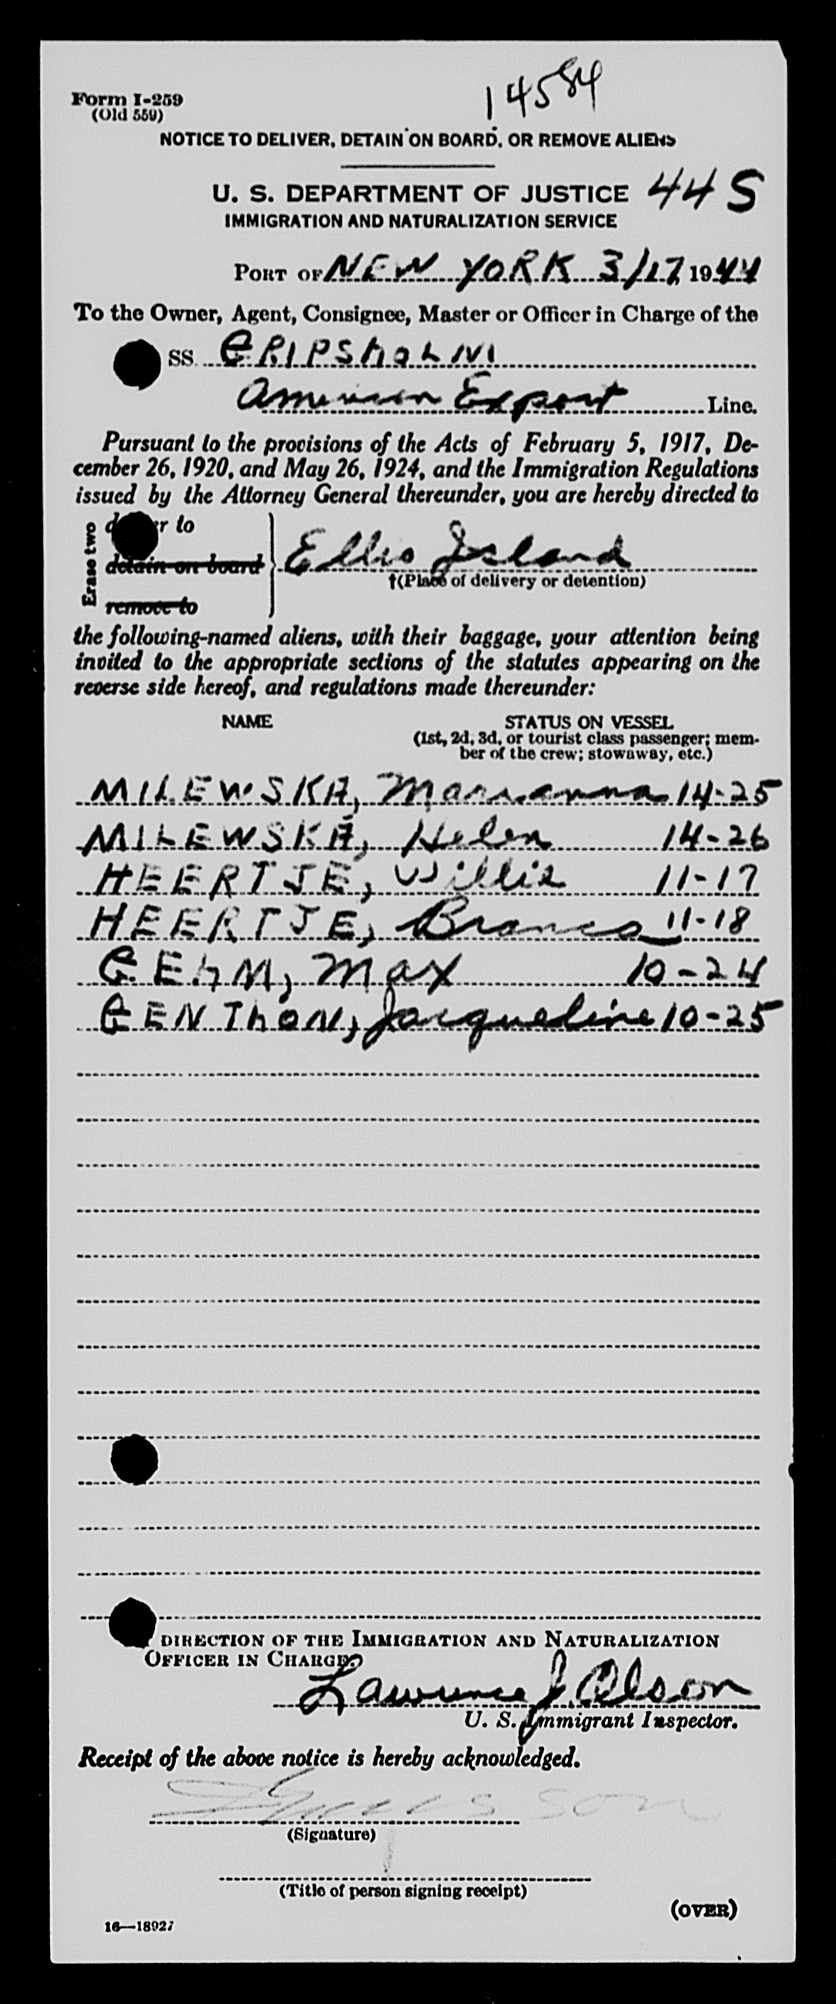 14584
Form I-259
(Old 559)
NOTICE TO DELIVER, DETAIN ON BOARD, OR REMOVE ALIENS
U. S. DEPARTMENT OF JUSTICE 44 S
IMMIGRATION AND NATURALIZATION SERVICE
PORT OF NEW YORK 3/17 1944
To the Owner, Agent, Consignee, Master or Officer in Charge of the
SS. GRIPSHOLM
American Export Line.
Pursuant to the provisions of the Acts of February 5, 1917, De-
cember 26, 1920, and May 26, 1924, and the Immigration Regulations
issued by the Attorney General thereunder, you are hereby directed to
Erase two
r to
detain on board
remove to
Ellis Island
†(Place of delivery or detention)
the following-named aliens, with their baggage, your attention being
invited to the appropriate sections of the statutes appearing on the
reverse side hereof, and regulations made thereunder:
NAME STATUS ON VESSEL
(1st, 2d, 3d, or tourist class passenger; mem-
ber of the crew; stowaway, etc.)
MILEWSKA, Marianna 14-25
MILEWSKA, Helen 14-26
HEERTJE, Willie 11-17
HEERTJE, Branca 11-18
GEHM, Max 10-24
GENTHON, Jacqueline 10-25
DIRECTION OF THE IMMIGRATION AND NATURALIZATION
OFFICER IN CHARGE:
Lawrence J. Olson
U. S. Immigrant Inspector.
Receipt of the above notice is hereby acknowledged.
(Signature)
(Title of person signing receipt)
(OVER)
16—18927